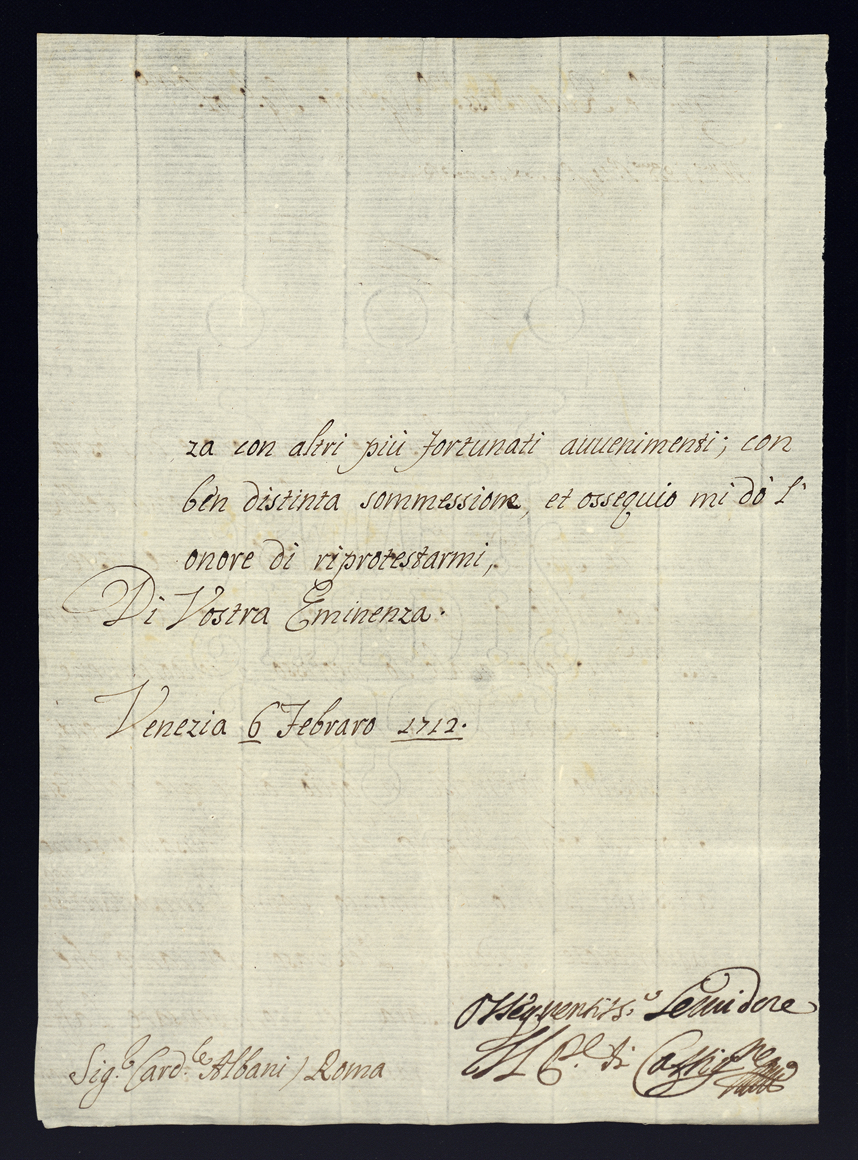 za con altri più fortunati auuenimenti; con
ben distinta sommessione, et ossequio mi dò l'
onore di riprotestarmi,
Di Vostra Eminenza.
Venezia 6 Febraro 1712.
Osseq.uentiss.o Seruidore
Il P.pe di Castig.ne
Sig.r Card.le Albani / Roma